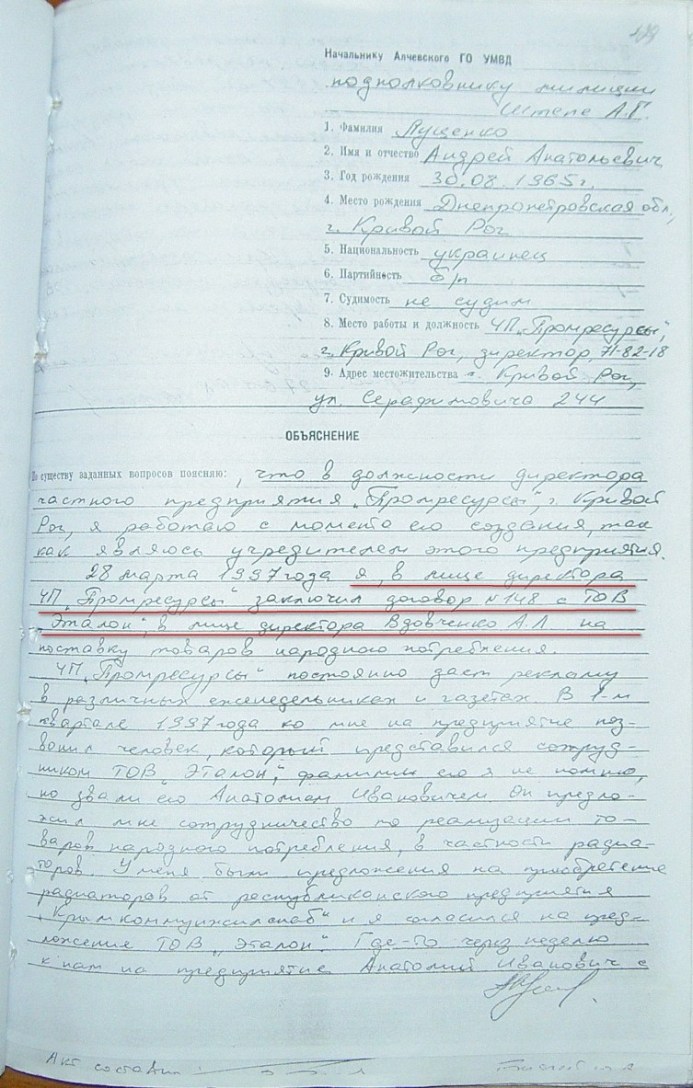 Начальнику Алчевского ГО УМВД
подполковнику милиции
Штепе А.Г.
1. Фамилия Луценко
2. Имя и отчество Андрей Анатольевич
3. Год рождения 30.08.1965г.
4. Место рождения Днепропетровская обл,
г. Кривой Рог
5. Национальность украинец
6. Партийность б/п
7. Судимость не судим
8. Место работы и должность ЧП „Промресурсы",
г. Кривой Рог, директор, 71-82-18
9. Адрес местожительства г. Кривой Рог,
ул. Серафимовича 244
ОБЪЯСНЕНИЕ
По существу заданных вопросов поясняю: , что в должности директора
частного предприятия „Промресурсы", г. Кривой
Рог, я работаю с момента его создания, так
как являюсь учредителем этого предприятия.
28 марта 1997 года я, в лице директора
ЧП „Промресурсы" заключил договор №148 с ТОВ
„Эталон", в лице директора Вдовченко А.Л. на
поставку товаров народного потребления.
ЧП „Промресурсы" постоянно дает рекламу
в различных еженедельниках и газетах. В 1-м
квартале 1997 года ко мне на предприятие поз-
вонил человек, который представился сотруд-
ником ТОВ „Эталон", фамилии его я не помню,
но звали его Анатолием Ивановичем. Он предло-
жил мне сотрудничество по реализации то-
варов народного потребления, в частности радиа-
торов. У меня были предложения на приобретение
радиаторов от республиканского предприятия
„Крымкоммунжилснаб" и я согласился на пред-
ложение ТОВ „Эталон". Где-то через неделю
к нам на предприятие Анатолий Иванович с